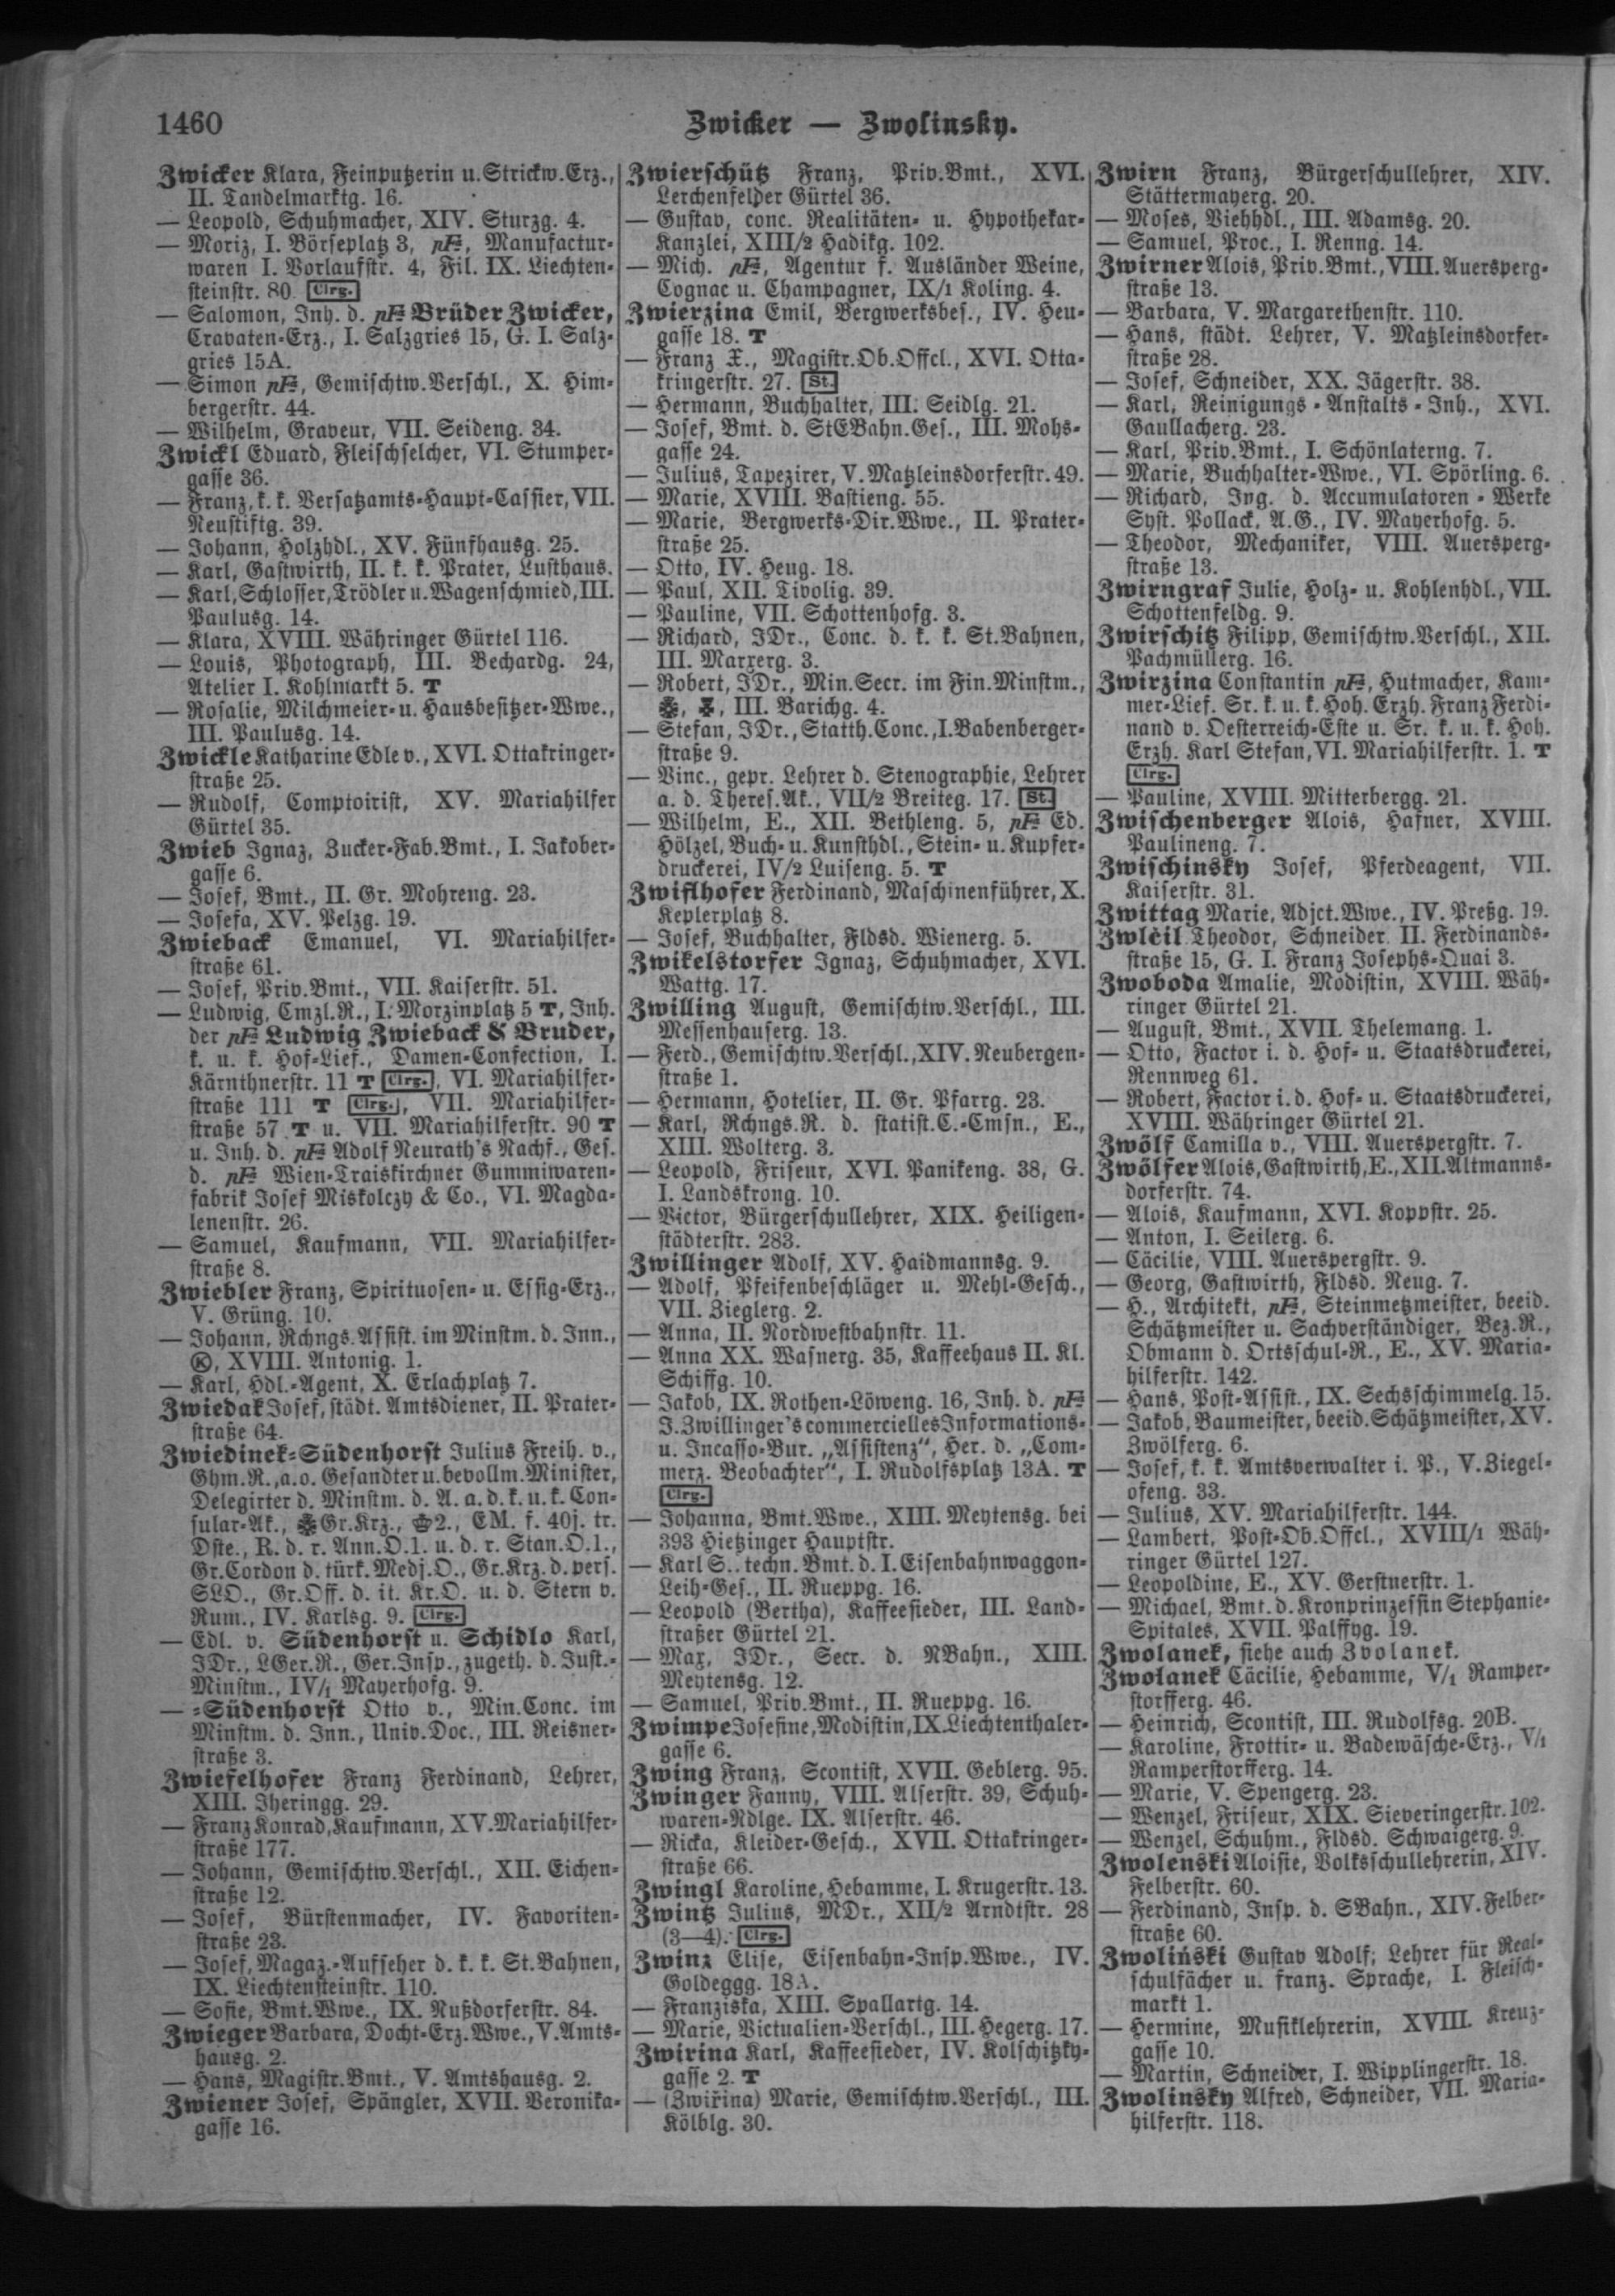 1460
Zwicker — Zwolinsky.
Zwicker Klara, Feinputzerin u. Strickw. Erz.,
II. Tandelmarktg. 16.
— Leopold, Schuhmacher, XIV. Sturzg. 4.
— Moriz, I. Börseplatz 3, pF, Manufactur-
waren I. Vorlaufstr. 4, Fil. IX. Liechten-
steinstr. 80 Clrg.
— Salomon, Inh. d. pF Brüder Zwicker,
Cravaten-Erz., I. Salzgries 15, G. I. Salz-
gries 15A.
— Simon pF, Gemischtw. Verschl., X. Him-
bergerstr. 44.
— Wilhelm, Graveur, VII. Seideng. 34.
Zwickl Eduard, Fleischselcher, VI. Stumper-
gasse 36.
— Franz, k. k. Versatzamts-Haupt-Cassier, VII.
Neustiftg. 39.
— Johann, Holzhdl., XV. Fünfhausg. 25.
— Karl, Gastwirth, II. k. k. Prater, Lusthaus.
— Karl, Schlosser, Trödler u. Wagenschmied, III.
Paulusg. 14.
— Klara, XVIII. Währinger Gürtel 116.
— Louis, Photograph, III. Bechardg. 24,
Atelier I. Kohlmarkt 5. T
— Rosalie, Milchmeier- u. Hausbesitzer-Wwe.,
III. Paulusg. 14.
Zwickle Katharine Edle v., XVI. Ottakringer-
straße 25.
— Rudolf, Comptoirist, XV. Mariahilfer
Gürtel 35.
Zwieb Ignaz, Zucker-Fab. Bmt., I. Jakober-
gasse 6.
— Josef, Bmt., II. Gr. Mohreng. 23.
— Josefa, XV. Pelzg. 19.
Zwieback Emanuel, VI. Mariahilfer-
straße 61.
— Josef, Priv. Bmt., VII. Kaiserstr. 51.
— Ludwig, Cmzl. R., I. Morzinplatz 5 T, Inh.
der pF Ludwig Zwieback & Bruder,
k. u. k. Hof-Lief., Damen-Confection, I.
Kärnthnerstr. 11 T Clrg., VI. Mariahilfer-
straße 111 T Clrg., VII. Mariahilfer-
straße 57 T u. VII. Mariahilferstr. 90 T
u. Inh. d. pF Adolf Neurath's Nachf., Ges.
d. pF Wien-Traiskirchner Gummiwaren-
fabrik Josef Miskolczy & Co., VI. Magda-
lenenstr. 26.
— Samuel, Kaufmann, VII. Mariahilfer-
straße 8.
Zwiebler Franz, Spirituosen- u. Essig-Erz.,
V. Grüng. 10.
— Johann, Rchngs. Assist. im Minstm. d. Inn.,
Ⓚ, XVIII. Antonig. 1.
— Karl, Hdl.-Agent, X. Erlachplatz 7.
Zwiedak Josef, städt. Amtsdiener, II. Prater-
straße 64.
Zwiedinek-Südenhorst Julius Freih. v.,
Ghm. R., a. o. Gesandter u. bevollm. Minister,
Delegirter d. Minstm. d. A. a. d. k. u. k. Con-
sular-Ak., Gr. Krz., 2., EM. f. 40j. tr.
Dste., R. d. r. Ann. O. 1. u. d. r. Stan. O. 1.,
Gr. Cordon d. türk. Medj. O., Gr. Krz. d. pers.
SLO., Gr. Off. d. it. Kr. O. u. d. Stern v.
Rum., IV. Karlsg. 9. Clrg.
— Edl. v. Südenhorst u. Schidlo Karl,
JDr., LGer. R., Ger. Insp., zugeth. d. Just.-
Minstm., IV/1 Mayerhofg. 9.
— -Südenhorst Otto v., Min. Conc. im
Minstm. d. Inn., Univ. Doc., III. Reisner-
straße 3.
Zwiefelhofer Franz Ferdinand, Lehrer,
XIII. Iheringg. 29.
— Franz Konrad, Kaufmann, XV. Mariahilfer-
straße 177.
— Johann, Gemischtw. Verschl., XII. Eichen-
straße 12.
— Josef, Bürstenmacher, IV. Favoriten-
straße 23.
— Josef, Magaz.-Aufseher d. k. k. St. Bahnen,
IX. Liechtensteinstr. 110.
— Sofie, Bmt. Wwe., IX. Nußdorferstr. 84.
Zwieger Barbara, Docht-Erz. Wwe., V. Amts-
hausg. 2.
— Hans, Magistr. Bmt., V. Amtshausg. 2.
Zwiener Josef, Spängler, XVII. Veronika-
gasse 16.
Zwierschütz Franz, Priv. Bmt., XVI.
Lerchenfelder Gürtel 36.
— Gustav, conc. Realitäten- u. Hypothekar-
Kanzlei, XIII/2 Hadikg. 102.
— Mich. pF, Agentur f. Ausländer Weine,
Cognac u. Champagner, IX/1 Koling. 4.
Zwierzina Emil, Bergwerksbes., IV. Heu-
gasse 18. T
— Franz X., Magistr. Ob. Offcl., XVI. Otta-
kringerstr. 27. St.
— Hermann, Buchhalter, III. Seidlg. 21.
— Josef, Bmt. d. StEBahn. Ges., III. Mohs-
gasse 24.
— Julius, Tapezirer, V. Matzleinsdorferstr. 49.
— Marie, XVIII. Bastieng. 55.
— Marie, Bergwerks-Dir. Wwe., II. Prater-
straße 25.
— Otto, IV. Heug. 18.
— Paul, XII. Tivolig. 39.
— Pauline, VII. Schottenhofg. 3.
— Richard, JDr., Conc. d. k. k. St. Bahnen,
III. Marxerg. 3.
— Robert, JDr., Min. Secr. im Fin. Minstm.,
III. Barichg. 4.
— Stefan, JDr., Statth. Conc., I. Babenberger-
straße 9.
— Vinc., gepr. Lehrer d. Stenographie, Lehrer
a. d. Theres. Ak., VII/2 Breiteg. 17. St.
— Wilhelm, E., XII. Bethleng. 5, pF Ed.
Hölzel, Buch- u. Kunsthdl., Stein- u. Kupfer-
druckerei, IV/2 Luiseng. 5. T
Zwiflhofer Ferdinand, Maschinenführer, X.
Keplerplatz 8.
— Josef, Buchhalter, Fldsd. Wienerg. 5.
Zwikelstorfer Ignaz, Schuhmacher, XVI.
Wattg. 17.
Zwilling August, Gemischtw. Verschl., III.
Messenhauserg. 13.
— Ferd., Gemischtw. Verschl., XIV. Neubergen-
straße 1.
— Hermann, Hotelier, II. Gr. Pfarrg. 23.
— Karl, Rchngs. R. d. statist. C.-Cmsn., E.,
XIII. Wolterg. 3.
— Leopold, Friseur, XVI. Panikeng. 38, G.
I. Landskrong. 10.
— Victor, Bürgerschullehrer, XIX. Heiligen-
städterstr. 283.
Zwillinger Adolf, XV. Haidmannsg. 9.
— Adolf, Pfeifenbeschläger u. Mehl-Gesch.,
VII. Zieglerg. 2.
— Anna, II. Nordwestbahnstr. 11.
— Anna XX. Wasnerg. 35, Kaffeehaus II. Kl.
Schiffg. 10.
— Jakob, IX. Rothen-Löweng. 16, Inh. d. pF
J. Zwillinger's commercielles Informations-
u. Incasso-Bur. „Assistenz“, Her. d. „Com-
merz. Beobachter“, I. Rudolfsplatz 13A. T
Clrg.
— Johanna, Bmt. Wwe., XIII. Meytensg. bei
393 Hietzinger Hauptstr.
— Karl S., techn. Bmt. d. I. Eisenbahnwaggon-
Leih-Ges., II. Rueppg. 16.
— Leopold (Bertha), Kaffeesieder, III. Land-
straßer Gürtel 21.
— Max, JDr., Secr. d. NBahn., XIII.
Meytensg. 12.
— Samuel, Priv. Bmt., II. Rueppg. 16.
Zwimpe Josefine, Modistin, IX. Liechtenthaler-
gasse 6.
Zwing Franz, Scontist, XVII. Geblerg. 95.
Zwinger Fanny, VIII. Alserstr. 39, Schuh-
waren-Ndlge. IX. Alserstr. 46.
— Ricka, Kleider-Gesch., XVII. Ottakringer-
straße 66.
Zwingl Karoline, Hebamme, I. Krugerstr. 13.
Zwintz Julius, MDr., XII/2 Arndtstr. 28
(3—4). Clrg.
Zwinz Elise, Eisenbahn-Insp. Wwe., IV.
Goldeggg. 18A.
— Franziska, XIII. Spallartg. 14.
— Marie, Victualien-Verschl., III. Hegerg. 17.
Zwirina Karl, Kaffeesieder, IV. Kolschitzky-
gasse 2. T
— (Zwiřina) Marie, Gemischtw. Verschl., III.
Kölblg. 30.
Zwirn Franz, Bürgerschullehrer, XIV.
Stättermayerg. 20.
— Moses, Viehhdl., III. Adamsg. 20.
— Samuel, Proc., I. Renng. 14.
Zwirner Alois, Priv. Bmt., VIII. Auersperg-
straße 13.
— Barbara, V. Margarethenstr. 110.
— Hans, städt. Lehrer, V. Matzleinsdorfer-
straße 28.
— Josef, Schneider, XX. Jägerstr. 38.
— Karl, Reinigungs-Anstalts-Inh., XVI.
Gaullacherg. 23.
— Karl, Priv. Bmt., I. Schönlaterng. 7.
— Marie, Buchhalter-Wwe., VI. Spörling. 6.
— Richard, Ing. d. Accumulatoren-Werke
Syst. Pollack, A.G., IV. Mayerhofg. 5.
— Theodor, Mechaniker, VIII. Auersperg-
straße 13.
Zwirngraf Julie, Holz- u. Kohlenhdl., VII.
Schottenfeldg. 9.
Zwirschitz Filipp, Gemischtw. Verschl., XII.
Pachmüllerg. 16.
Zwirzina Constantin pF, Hutmacher, Kam-
mer-Lief. Sr. k. u. k. Hoh. Erzh. Franz Ferdi-
nand v. Oesterreich-Este u. Sr. k. u. k. Hoh.
Erzh. Karl Stefan, VI. Mariahilferstr. 1. T
Clrg.
— Pauline, XVIII. Mitterbergg. 21.
Zwischenberger Alois, Hafner, XVIII.
Paulineng. 7.
Zwischinsky Josef, Pferdeagent, VII.
Kaiserstr. 31.
Zwittag Marie, Adjct. Wwe., IV. Preßg. 19.
Zwlčil Theodor, Schneider II. Ferdinands-
straße 15, G. I. Franz Josephs-Quai 3.
Zwoboda Amalie, Modistin, XVIII. Wäh-
ringer Gürtel 21.
— August, Bmt., XVII. Thelemang. 1.
— Otto, Factor i. d. Hof- u. Staatsdruckerei,
Rennweg 61.
— Robert, Factor i. d. Hof- u. Staatsdruckerei,
XVIII. Währinger Gürtel 21.
Zwölf Camilla v., VIII. Auerspergstr. 7.
Zwölfer Alois, Gastwirth, E., XII. Altmanns-
dorferstr. 74.
— Alois, Kaufmann, XVI. Koppstr. 25.
— Anton, I. Seilerg. 6.
— Cäcilie, VIII. Auerspergstr. 9.
— Georg, Gastwirth, Fldsd. Neug. 7.
— H., Architekt, pF, Steinmetzmeister, beeid.
Schätzmeister u. Sachverständiger, Bez. R.,
Obmann d. Ortsschul-R., E., XV. Maria-
hilferstr. 142.
— Hans, Post-Assist., IX. Sechsschimmelg. 15.
— Jakob, Baumeister, beeid. Schätzmeister, XV.
Zwölferg. 6.
— Josef, k. k. Amtsverwalter i. P., V. Ziegel-
ofeng. 33.
— Julius, XV. Mariahilferstr. 144.
— Lambert, Post-Ob. Offcl., XVIII/1 Wäh-
ringer Gürtel 127.
— Leopoldine, E., XV. Gerstnerstr. 1.
— Michael, Bmt. d. Kronprinzessin Stephanie-
Spitales, XVII. Palffyg. 19.
Zwolanek, siehe auch Zvolanek.
Zwolanek Cäcilie, Hebamme, V/1 Ramper-
storfferg. 46.
— Heinrich, Scontist, III. Rudolfsg. 20B.
— Karoline, Frottir- u. Badewäsche-Erz., V/1
Ramperstorfferg. 14.
— Marie, V. Spengerg. 23.
— Wenzel, Friseur, XIX. Sieveringerstr. 102.
— Wenzel, Schuhm., Fldsd. Schwaigerg. 9.
Zwolenski Aloisie, Volksschullehrerin, XIV.
Felberstr. 60.
— Ferdinand, Insp. d. SBahn., XIV. Felber-
straße 60.
Zwoliński Gustav Adolf, Lehrer für Real-
schulfächer u. franz. Sprache, I. Fleisch-
markt 1.
— Hermine, Musiklehrerin, XVIII. Kreuz-
gasse 10.
— Martin, Schneider, I. Wipplingerstr. 18.
Zwolinsky Alfred, Schneider, VII. Maria-
hilferstr. 118.